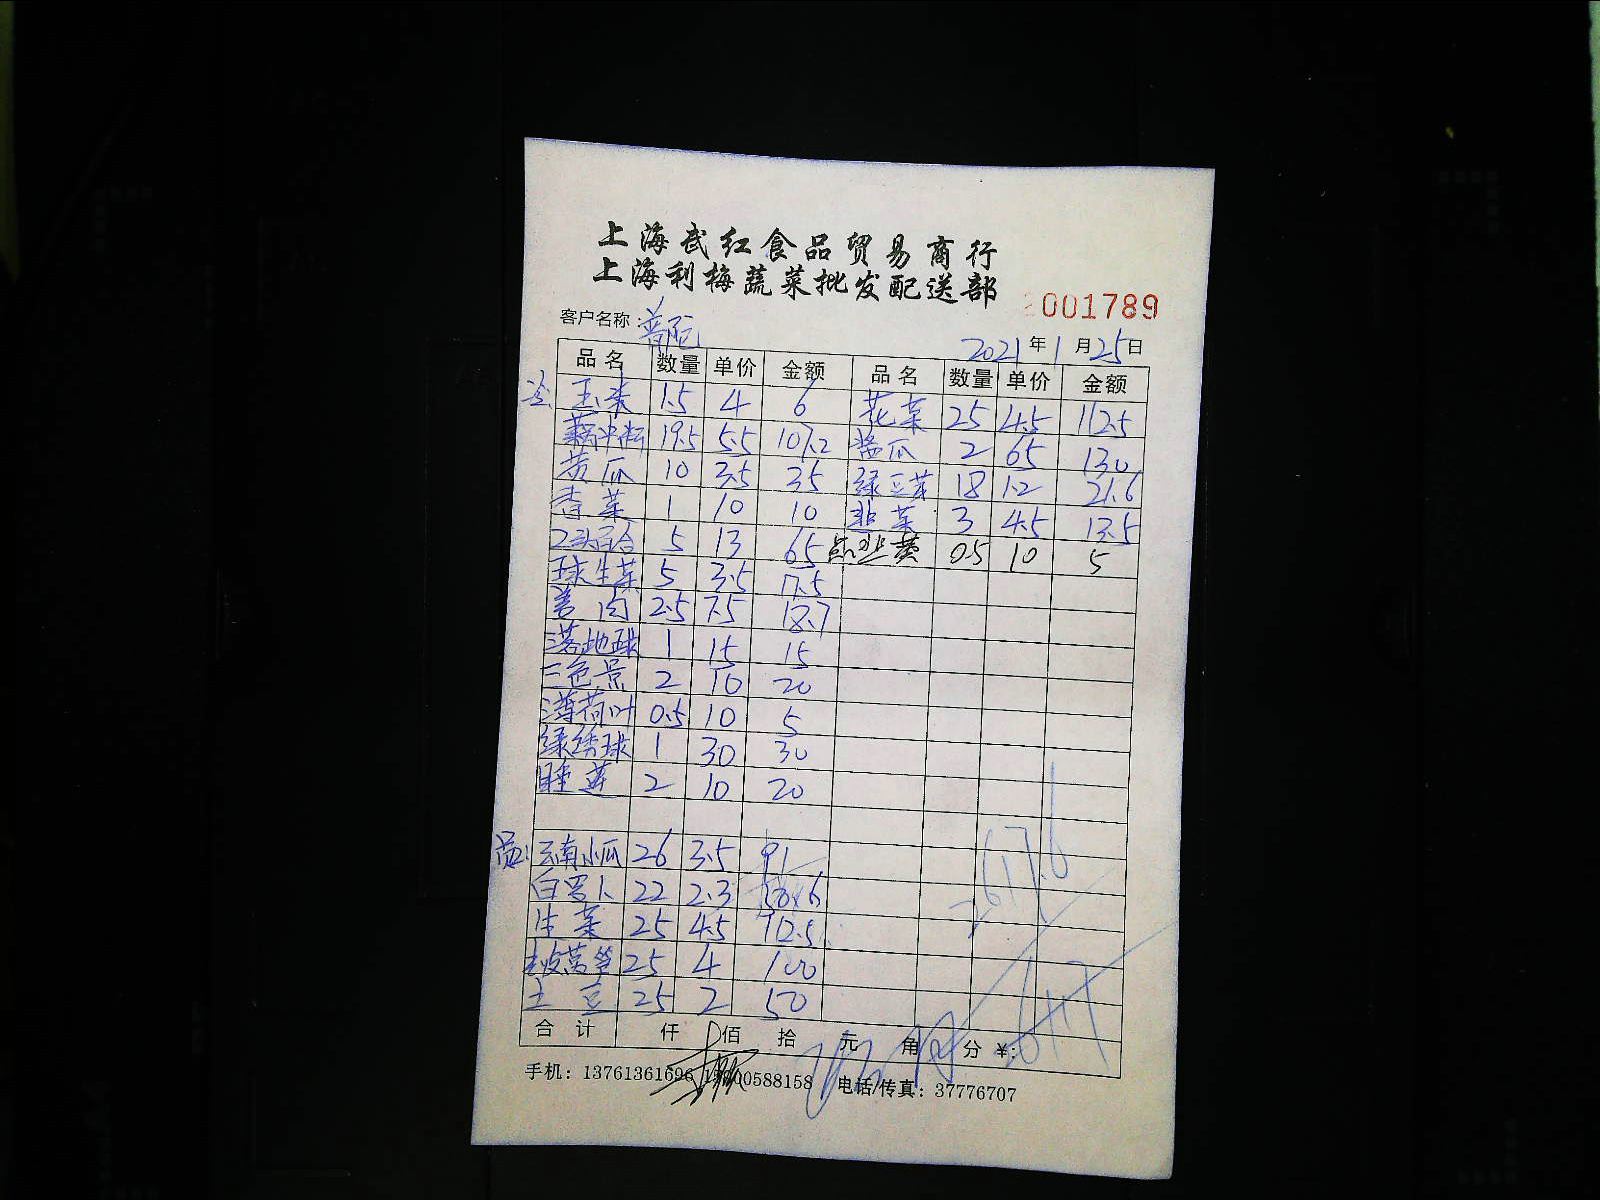 上海武红食品贸易商行
上海利梅蔬菜批发配送部
001789
客户名称：普陀
2021年1月25日
品名 数量 单价 金额 品名 数量 单价 金额
玉米 1.5 4 6 花菜 25 4.5 112.5
19.5 5.5 107.2 酱瓜 2 65 130
黄瓜 10 3.5 35 绿豆芽 18 1.2 21.6
香菜 1 10 10 韭菜 3 4.5 13.5
2头百合 5 13 65 韭黄 0.5 10 5
球生菜 5 3.5 17.5
姜肉 2.5 7.5 18.7
落地球 1 15 15
三色景 2 10 20
薄荷叶 0.5 10 5
绿绣球 1 30 30
睡莲 2 10 20
云南小瓜 26 3.5 91
白罗卜 22 2.3
生菜 25 4.5 112.5
莴笋 25 4 100
土豆 25 2 50
617.6
合计 仟 佰 拾 元 角 分 ¥:
617
手机：13761361696 588158 电话/传真：37776707